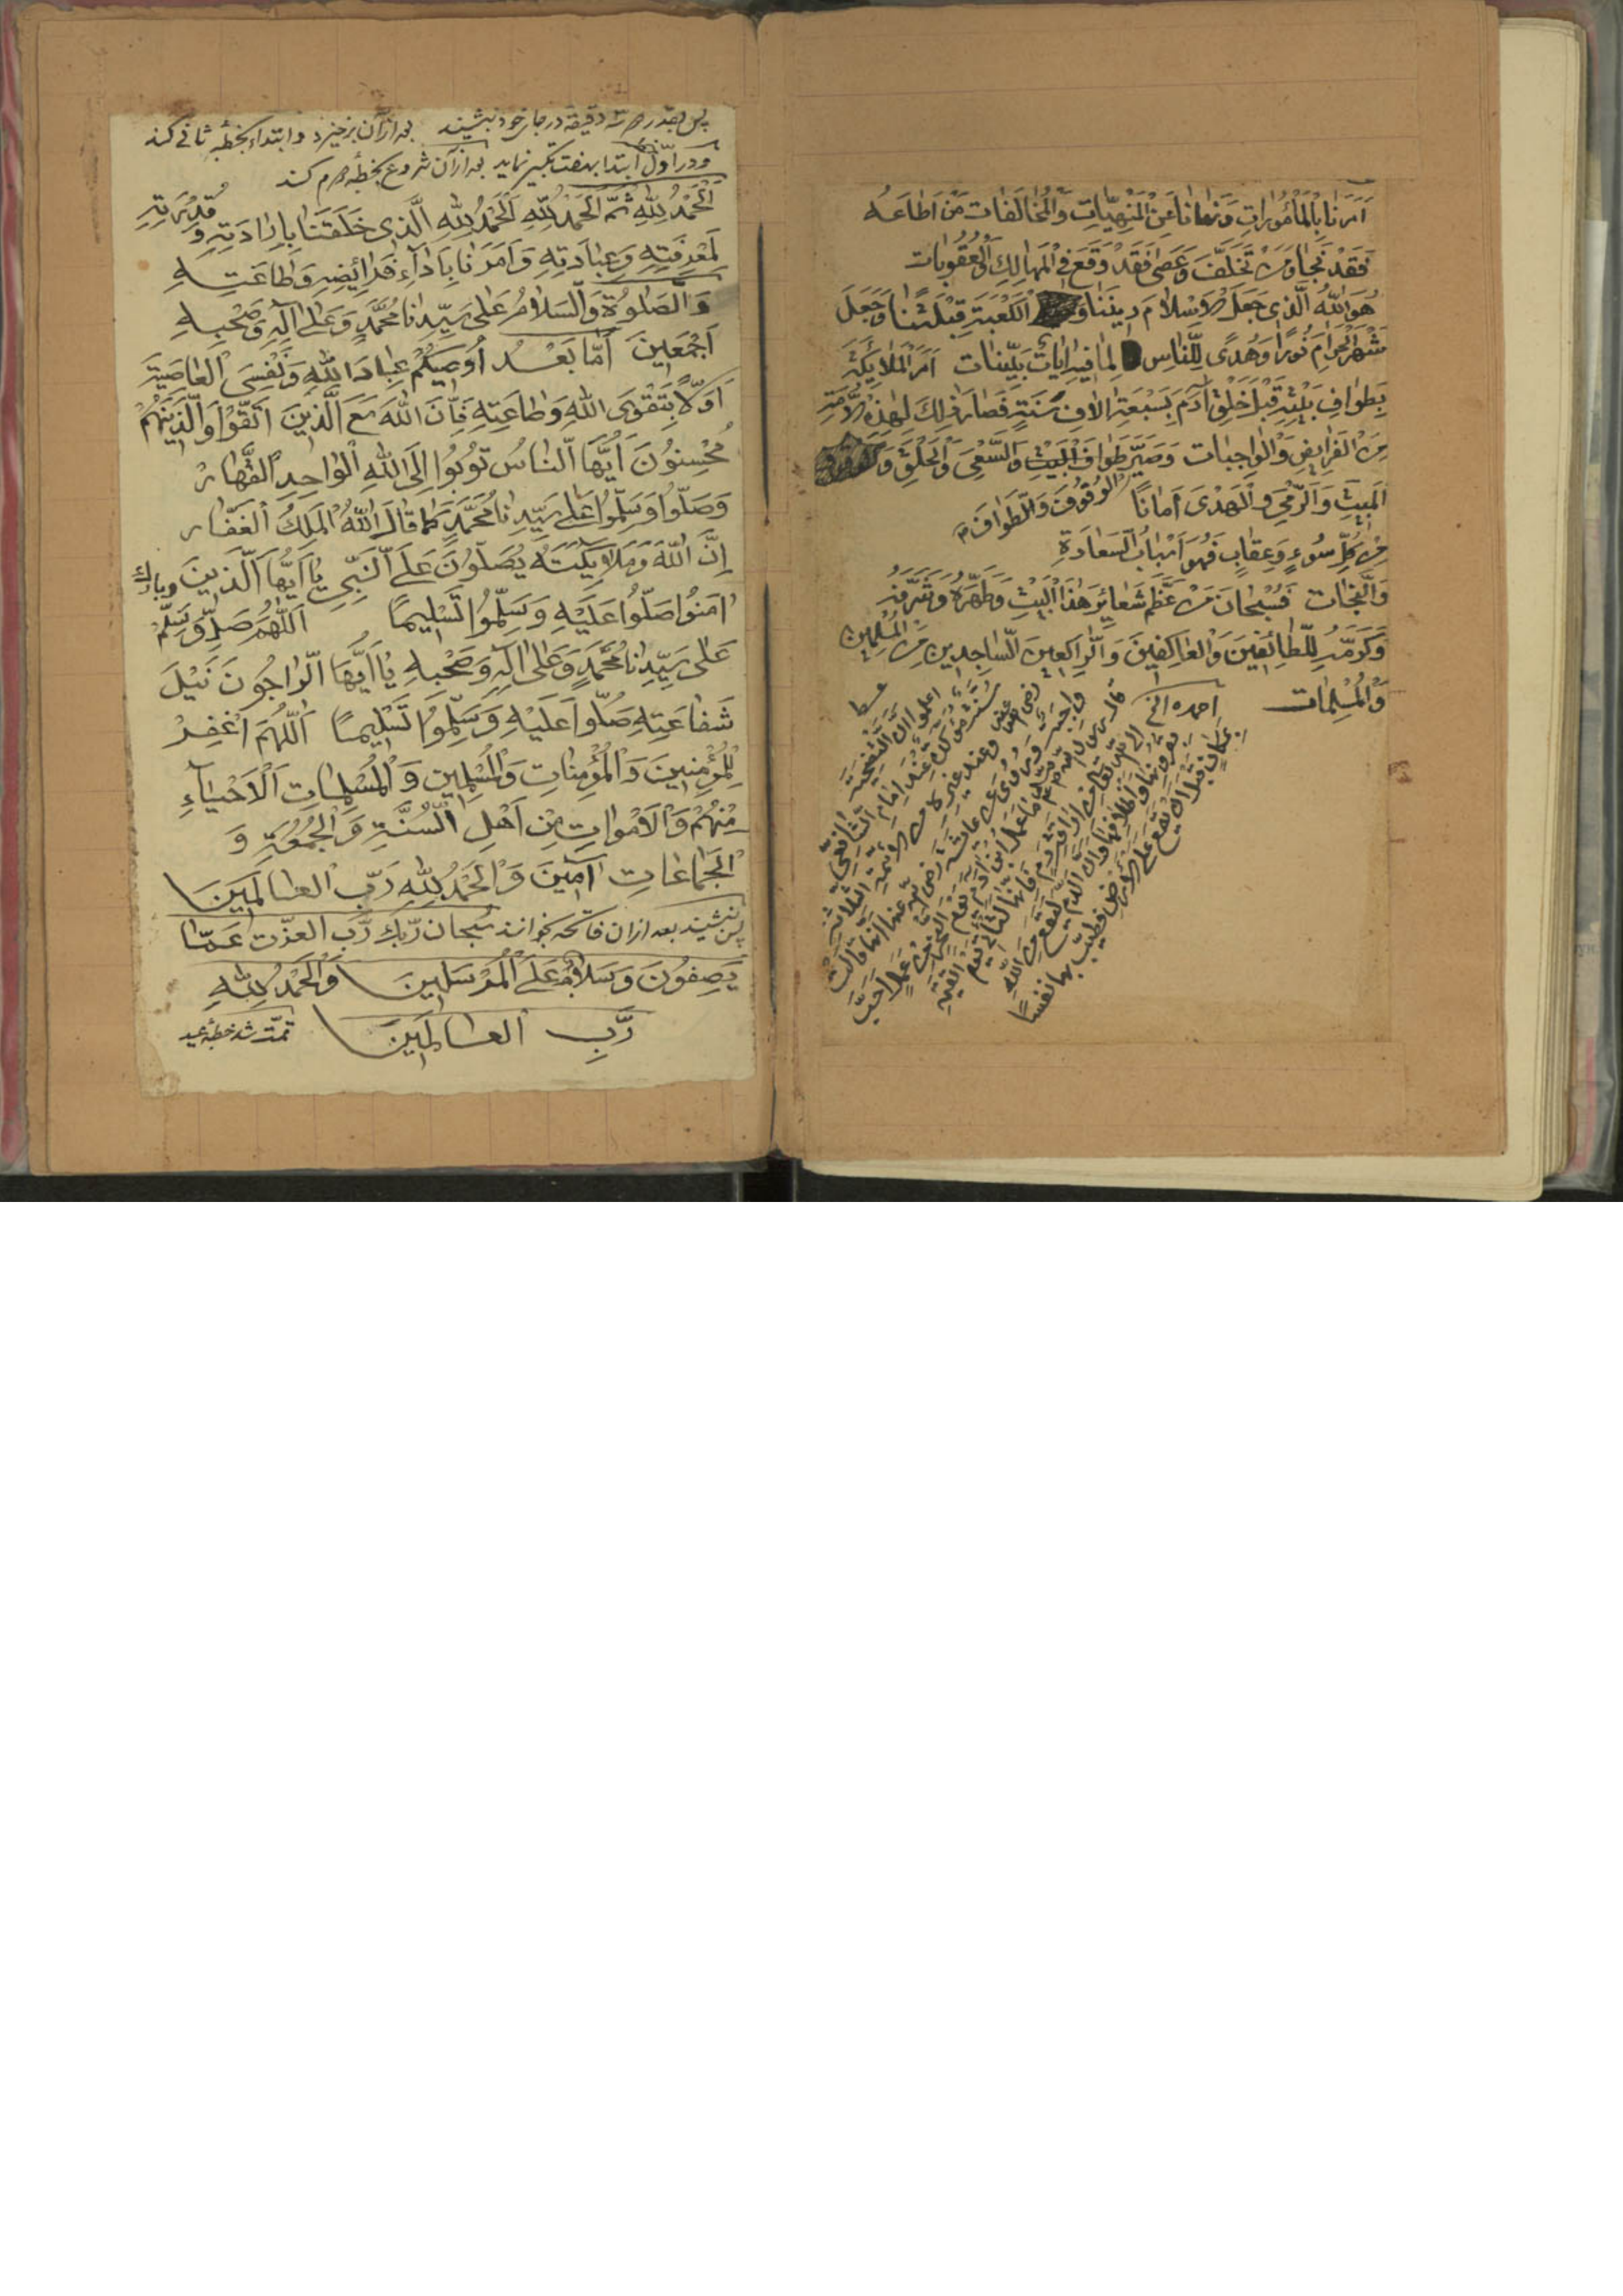 اَمَرَنا بِالمَأمُوراتِ وَنَهانا عَنِ الْمَنْهِيّاتِ وَالْمُخالَفات مَنْ اَطاعَهُ
فَقَدْ نَجا وَمَنْ تَخَلَّفَ وَعَصى فَقَدْ وَقَعَ فِي الْمَهالِكِ وَالْعُقُوبات
هُوَ اللهُ الَّذي جَعَلَ الاِسْلامَ دِيننا وَ اَلْكَعْبَةَ قِبْلَتَنا وَجَعَلَ
شَهْرَ الْحَرامِ نُورًا وَهُدًى لِلنّاس لِما فيهِ اٰياتٌ بَيِّنات اَمَرَ الْمَلائِكَةَ
بِطَوافِ بَيْتِهِ قَبْلَ خَلْقِ اٰدَمَ بِسَبْعَةِ اٰلافِ سَنَةٍ فَصارَ ذٰلِكَ لِهٰذِهِ الاُمَّةِ
مِنَ الْفَرائِضِ وَالْواجِبات وَصَيَّرَ طَوافَ الْبَيْتِ وَالسَّعْيَ وَالْحَلْقَ وَ
اَلْمَبِيتَ وَالرَّمْيَ وَالْهَدْيَ اَمانًا الْوُقُوفَ وَالطَّوافَ
مِنْ كُلِّ سُوءٍ وَعِقابٍ فَهُوَ اَسْبابُ السَّعادَةِ
وَالنَّجات فَسُبْحانَ مَنْ عَظَّمَ شَعائِرَ هٰذَا الْبَيْتِ وَطَهَّرَهُ وَشَرَّفَهُ
وَكَرَّمَهُ لِلطّائِفينَ وَالْعاكِفينَ وَالرّاكِعينَ السّاجِدينَ مِنَ الْمُسْلِمينَ
وَالْمُسْلِمات احمده الخ
اعلموا انّ التَّضْحِيَةَ
سُنَّةٌ عِنْدَ اِمامِ الشّافِعيّ
رضي الله عنه وعند غيره من الائمّة الثلاثة
واجبة وروي عن عائشة رضي الله عنها انها قالت
قال رسول الله صلم ما عمل ابن آدم يوم النحر من عمل احبّ
الى الله تعالى من اراقة دم فانها لتأتي يوم القيمة
بقرونها واظلافها وانّ الدم ليقع من الله
بمكان قبل ان يقع على الارض فطيبوا بها نفسًا
پس بقدر سه دقيقه در جاى خود بنشيند بعد ازان برخيزد و ابتداء بخطبه ثانى كند
و در اوّل ابتدا بهفت تكبير نمايد بعد ازان شروع بخطبه دوم كند
اَلْحَمْدُ لِلّٰهِ ثُمَّ الْحَمْدُ لِلّٰهِ اَلْحَمْدُ لِلّٰهِ الَّذي خَلَقَنا بِاِرادَتِهِ وَ قُدْرَتِهِ
لِمَعْرِفَتِهِ وَعِبادَتِهِ وَاَمَرَنا بِاَداءِ فَرائِضِهِ وَطاعَتِهِ
وَالصَّلٰوةُ وَالسَّلامُ عَلى سَيِّدِنا مُحَمَّدٍ وَعَلى اٰلِهِ وَصَحْبِهِ
اَجْمَعينَ اَمّا بَعْدُ اُوصيكُمْ عِبادَ اللهِ وَنَفْسِيَ الْعاصِيَةَ
اَوَّلًا بِتَقْوَى اللهِ وَطاعَتِهِ فَاِنَّ اللهَ مَعَ الَّذينَ اتَّقَوْا وَالَّذينَ هُمْ
مُحْسِنُونَ اَيُّهَا النّاسُ تُوبُوا اِلَى اللهِ الْواحِدِ الْقَهّارِ
وَصَلُّوا وَسَلِّمُوا عَلى سَيِّدِنا مُحَمَّدٍ كَما قالَ اللهُ الْمَلِكُ الْغَفّارُ
اِنَّ اللهَ وَمَلائِكَتَهُ يُصَلُّونَ عَلَى النَّبِيِّ يا اَيُّهَا الَّذينَ
اٰمَنُوا صَلُّوا عَلَيْهِ وَسَلِّمُوا تَسْليمًا اَللّٰهُمَّ صَلِّ وَسَلِّمْ وبارك
عَلى سَيِّدِنا مُحَمَّدٍ وَعَلى اٰلِهِ وَصَحْبِهِ يا اَيُّهَا الرّاجُونَ نَيْلَ
شَفاعَتِهِ صَلُّوا عَلَيْهِ وَسَلِّمُوا تَسْليمًا اَللّٰهُمَّ اغْفِرْ
لِلْمُؤْمِنينَ وَالْمُؤْمِناتِ وَالْمُسْلِمينَ وَالْمُسْلِماتِ اَلْاَحْياءِ
مِنْهُمْ وَالْاَمْواتِ مِنْ اَهْلِ السُّنَّةِ وَالْجُمُعَةِ وَ
الْجَماعاتِ اٰمينَ وَالْحَمْدُ لِلّٰهِ رَبِّ الْعالَمينَ
پس بنشيند بعد ازان فاتحه بخوانند سبحان ربّك ربّ العزّت عمّا
يَصِفُونَ وَسَلامٌ عَلَى الْمُرْسَلينَ وَالْحَمْدُ لِلّٰهِ
رَبِّ الْعالَمينَ تمّت شد خطبۀ عيد